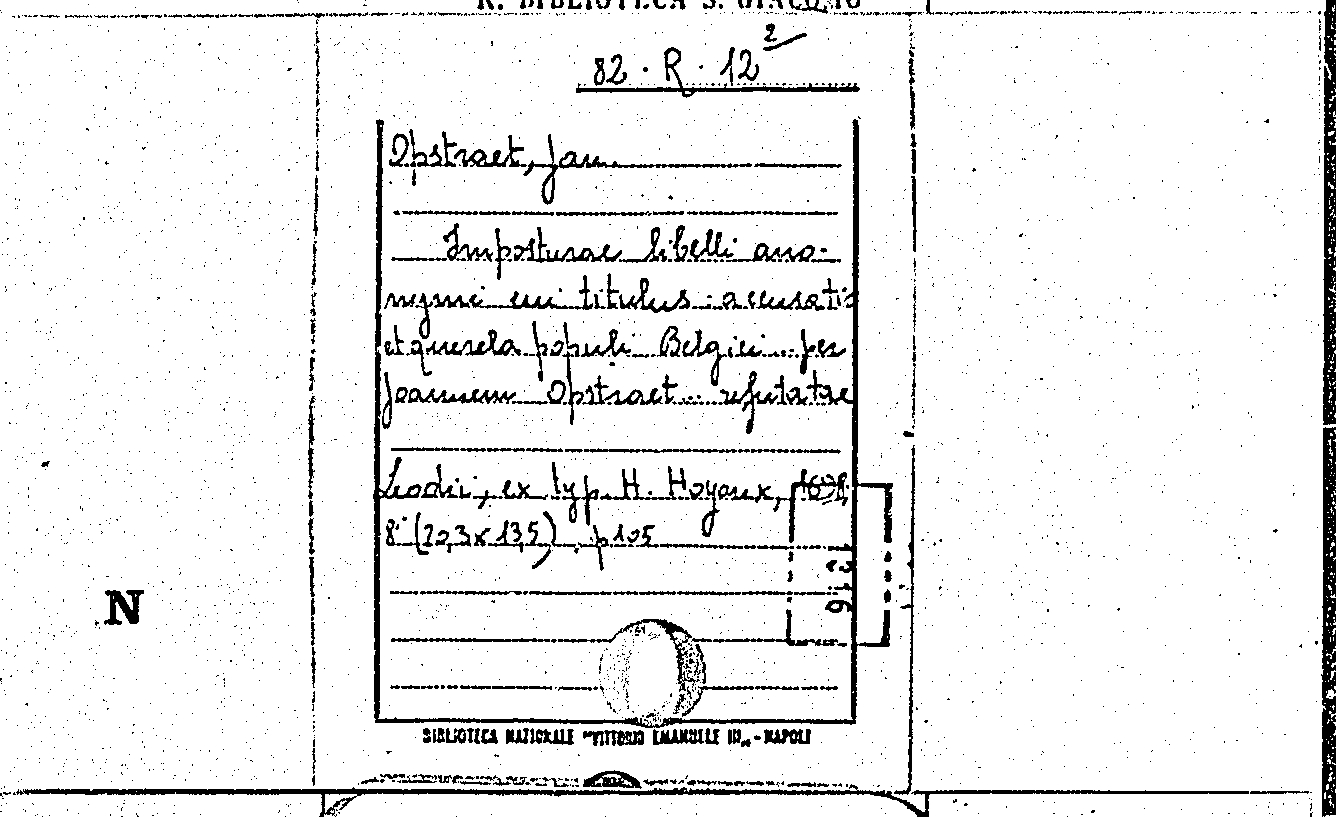 R. BIBLIOTECA S. GIACOMO
82 · R · 12²
Opstraet, Jan.
Imposturae libelli ano-
nymi cui titulus: accusatio
et querela populi Belgici... per
Joannem Opstraet... refutatae
Leodii, ex typ. H. Hoyoux,
8° (20,3 x 13,5) . p 105
N
BIBLIOTECA NAZIONALE "VITTORIO EMANUELE III„ - NAPOLI